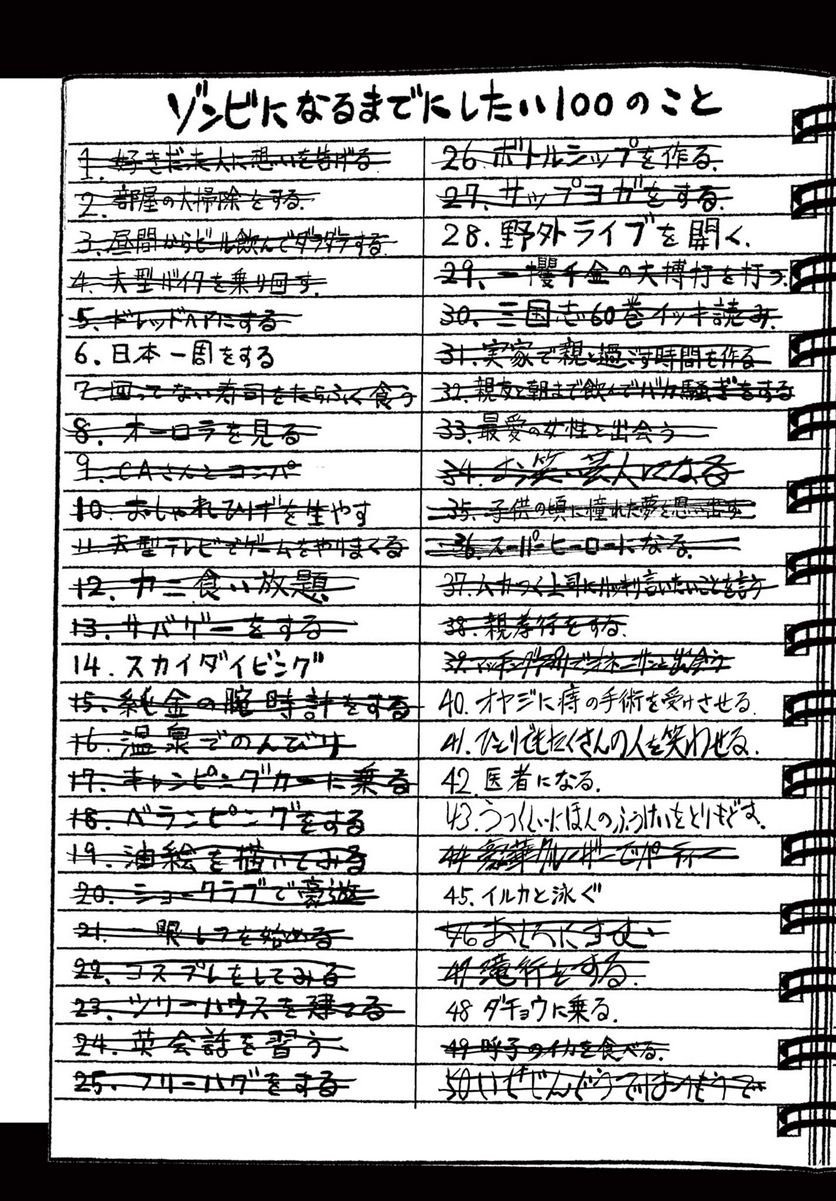 ゾンビになるまでにしたい100のこと
1. 好きだった人に想いを告げる
2. 部屋の大掃除をする.
3. 昼間からビール飲んでダラダラする
4. 大型バイクを乗り回す.
5. ドレッドヘアにする
6. 日本一周をする
7. 回ってない寿司をたらふく食う
8. オーロラを見る
9. CAさんとコンパ
10. おしゃれひげを生やす
11. 大型テレビでゲームをやりまくる
12. カニ食い放題
13. サバゲーをする
14. スカイダイビング
15. 純金の腕時計をする
16. 温泉でのんびり
17. キャンピングカーに乗る
18. ベランピングをする
19. 油絵を描いてみる
20. ショークラブで豪遊
21. 一眼レフを始める
22. コスプレをしてみる
23. ツリーハウスを建てる
24. 英会話を習う
25. フリーハグをする
26. ボトルシップを作る.
27. サップヨガをする.
28. 野外ライブを開く.
29. 一攫千金の大博打を打つ.
30. 三国志60巻イッキ読み.
31. 実家で親と過ごす時間を作る
32. 親友と朝まで飲んでバカ騒ぎをする
33. 最愛の女性と出会う
34. お笑い芸人になる
35. 子供の頃に憧れた夢を思い出す
36. スーパーヒーローになる.
37. ムカつく上司にハッキリ言いたいことを言う
38. 親孝行をする.
39. マッチングアプリでオネーサンと出会う
40. オヤジに痔の手術を受けさせる.
41. ひとりでもたくさんの人を笑わせる.
42. 医者になる.
43. うつくしいにほんのふうけいをとりもどす.
44. 豪華クルーザーでパーティー
45. イルカと泳ぐ
46
47. 滝行をする.
48 ダチョウに乗る.
49. 呼子のイカを食べる.
50